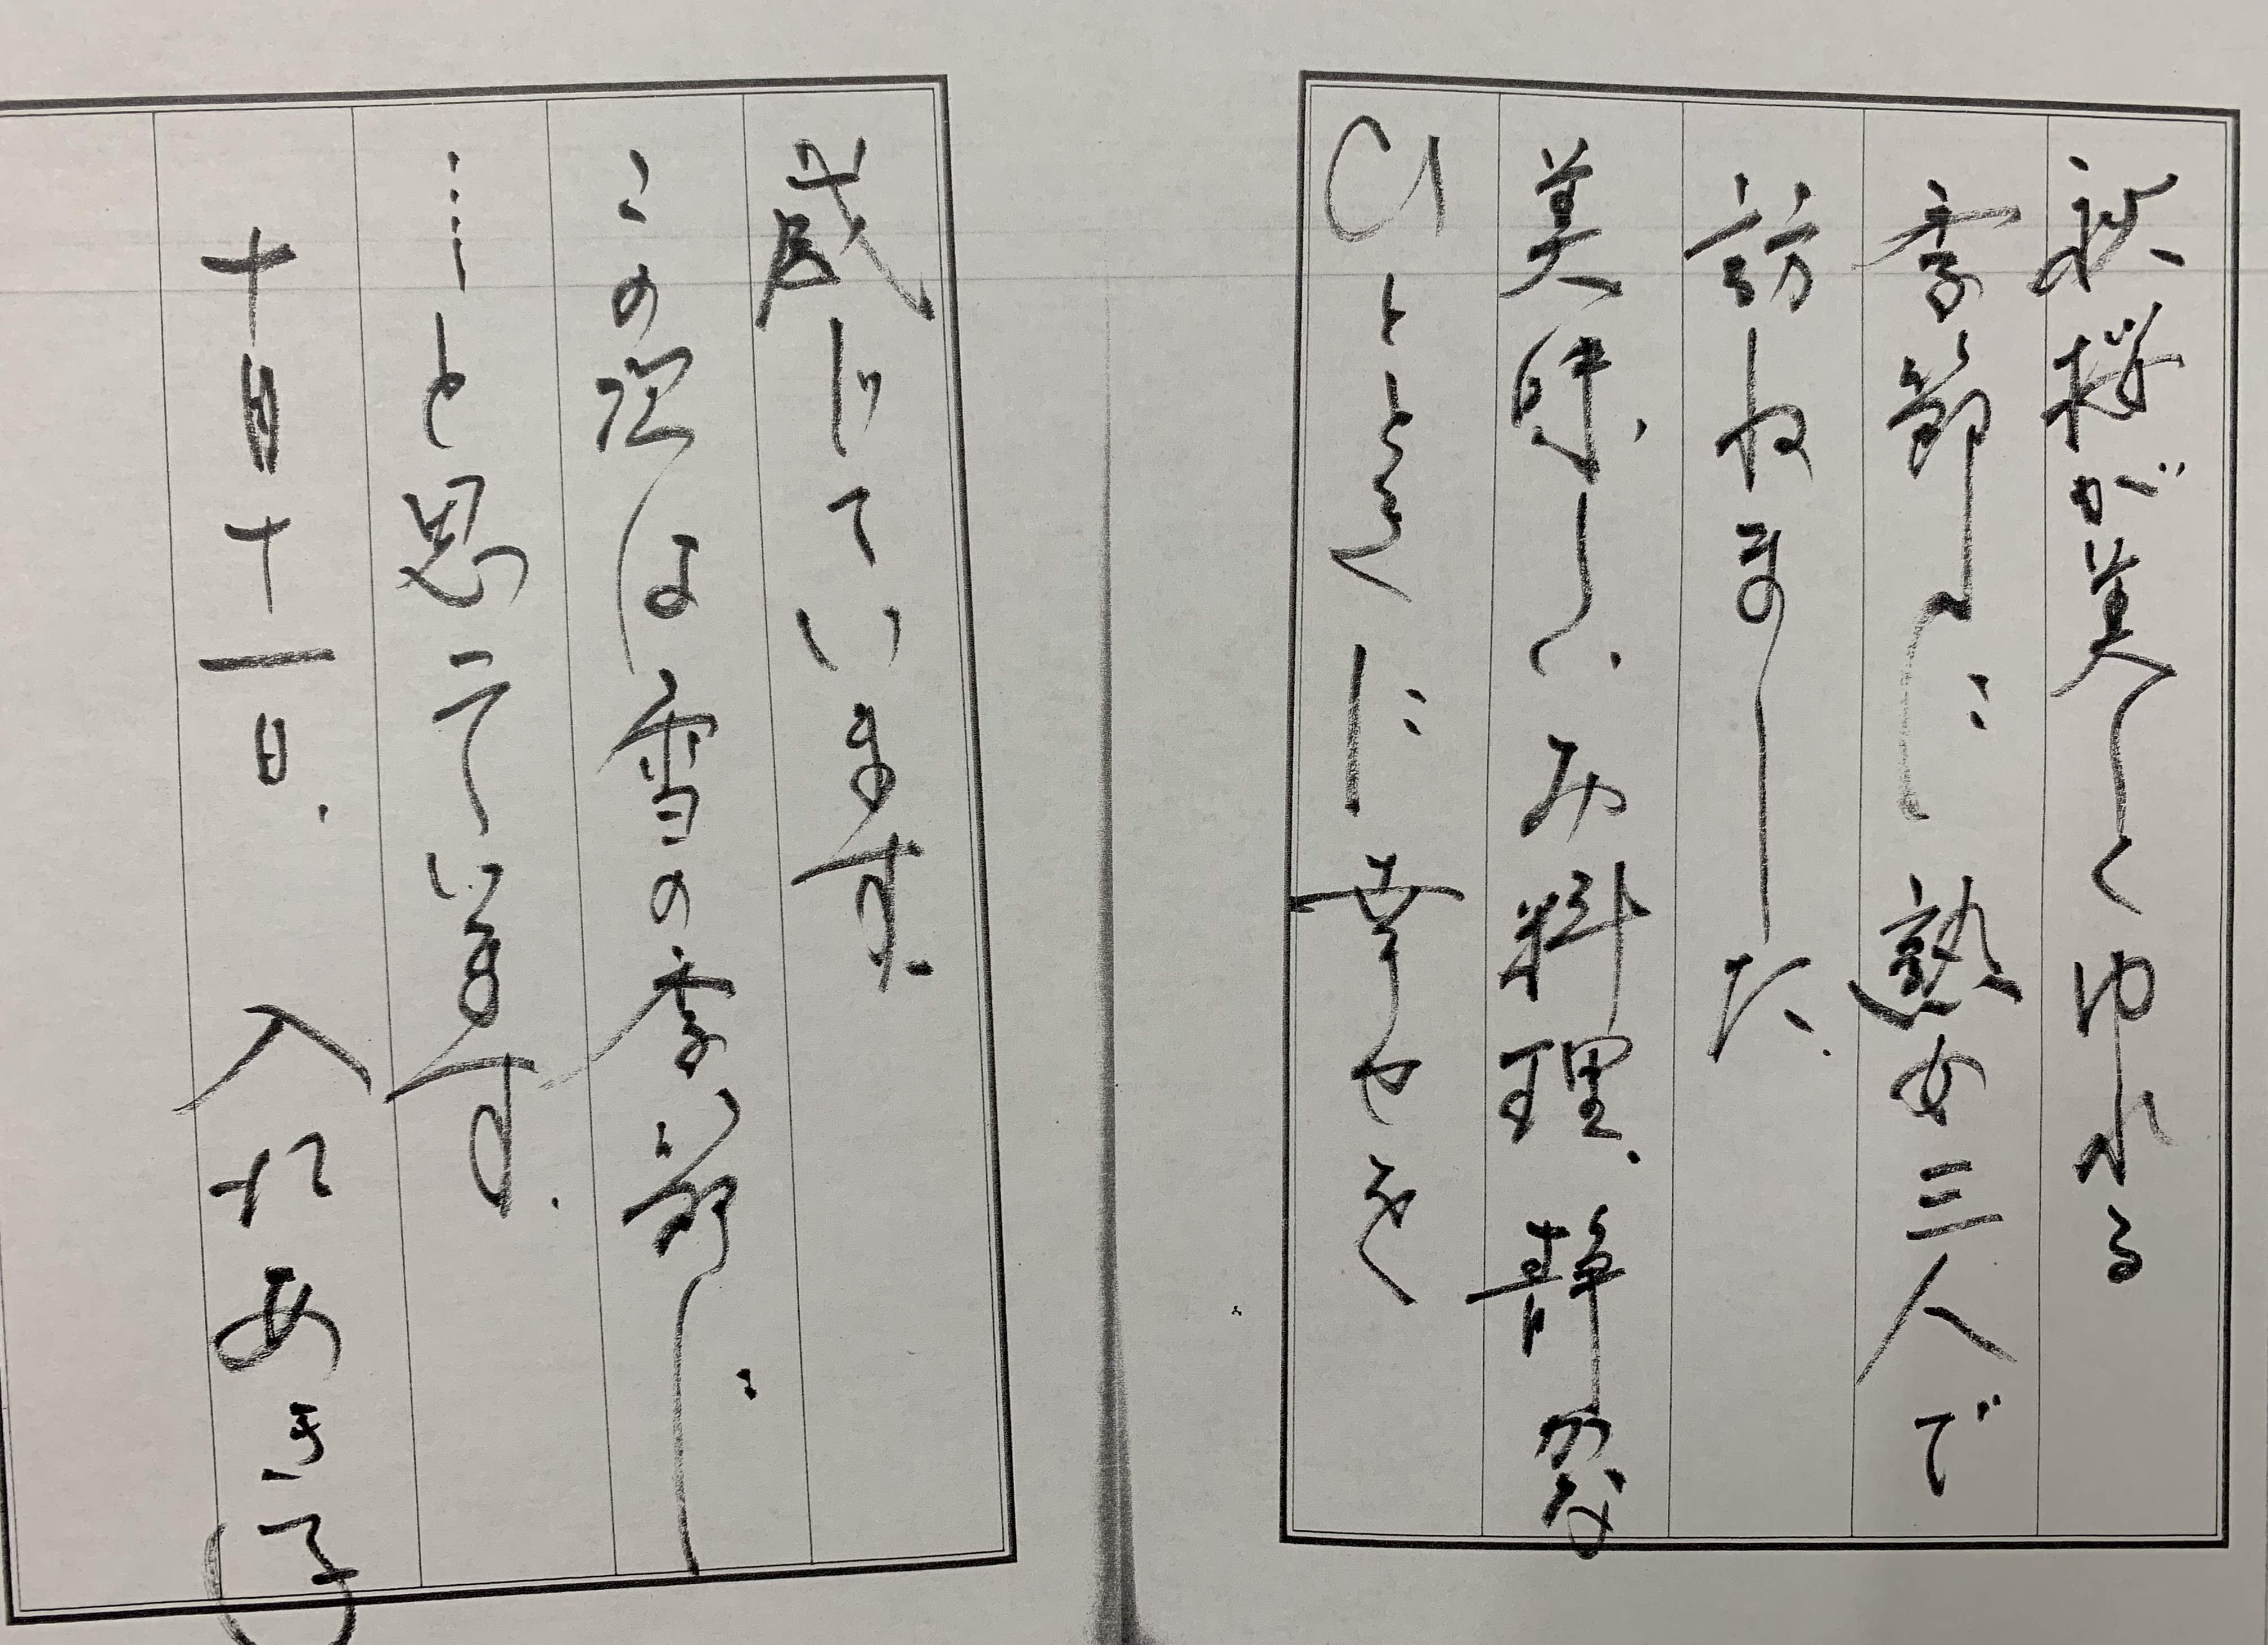 秋桜が美しくゆれる
季節に 熟女三人で
訪ねました.
美味しいお料理、静かな
ひとときに幸せを
感じています.
この次は雪の季節に
…と思っています.
十月十一日. 入れあき子